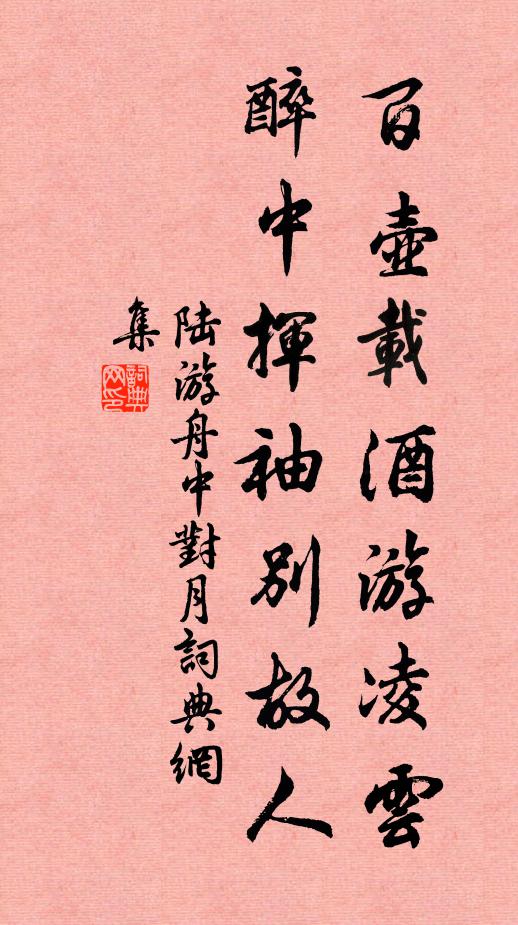 百壺載酒游凌雲
醉中揮袖別故人
陸游舟中對月詞典網
集
詞典
网印